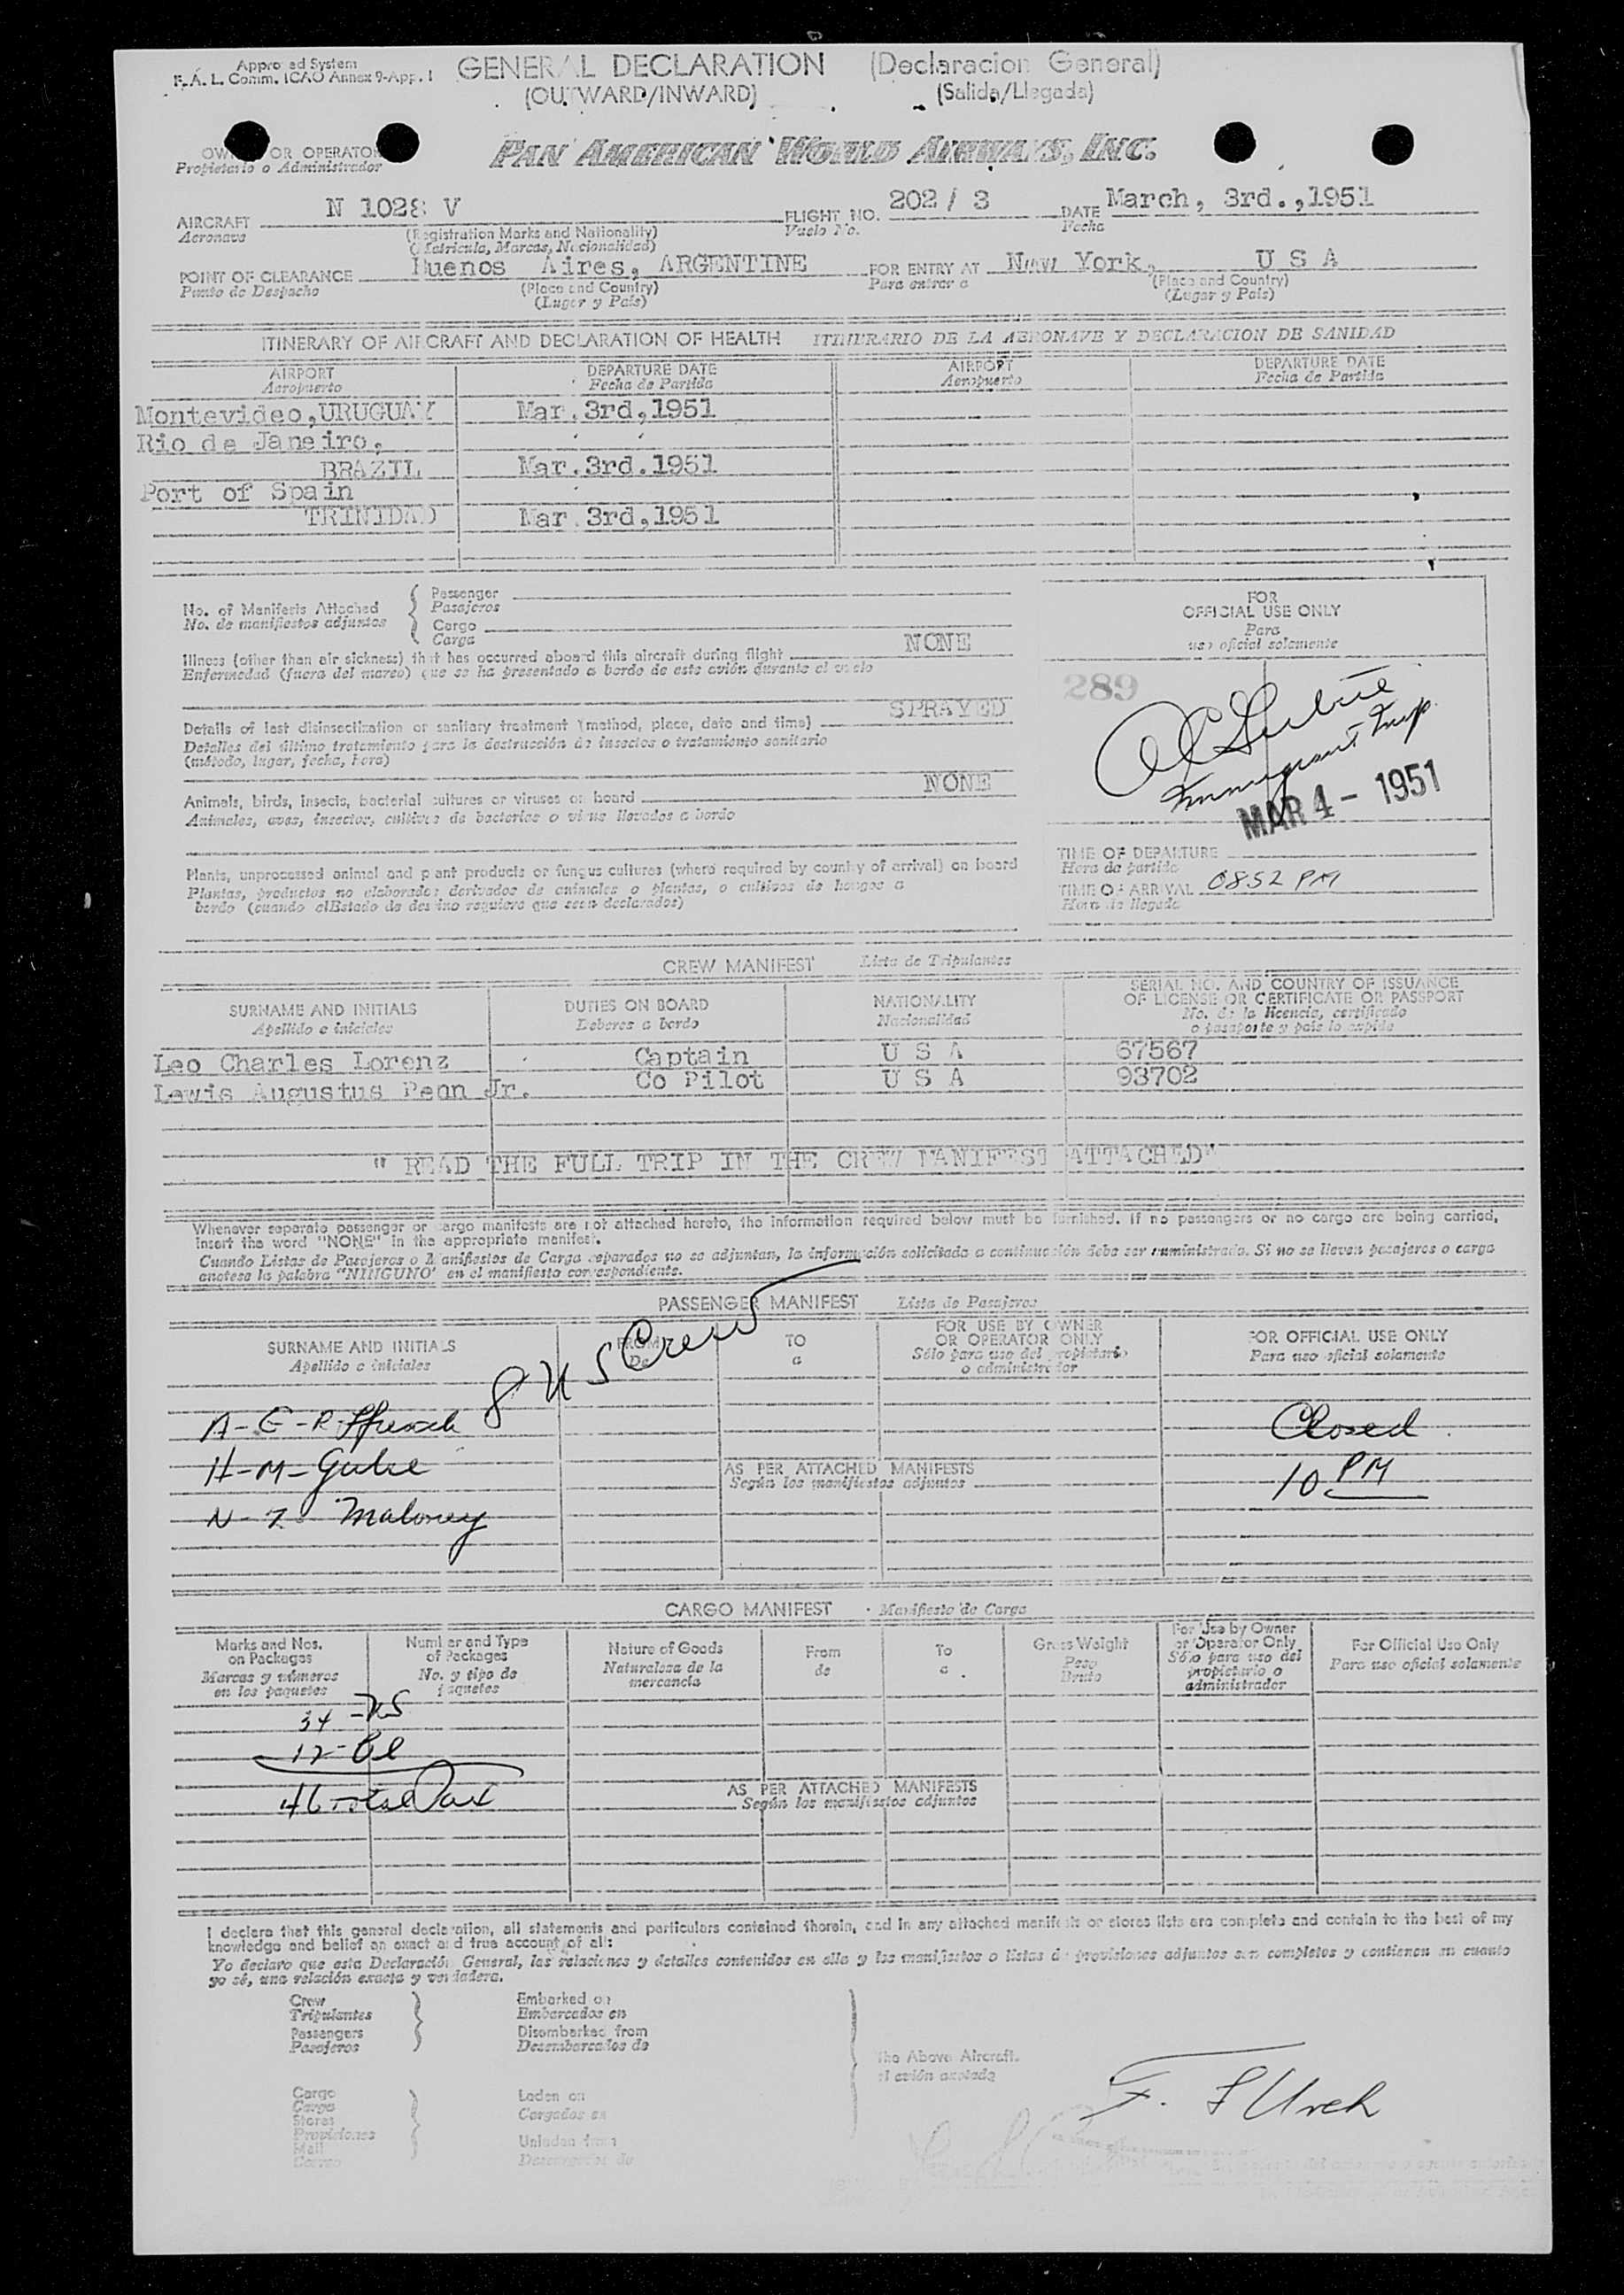 Approved System
F. A. L. Comm. ICAO Annex 9-App. 1
GENERAL DECLARATION (Declaracion General)
(OUTWARD/INWARD) (Salida/Llegada)
OWNER OR OPERATOR
Propietario o Administrador
PAN AMERICAN WORLD AIRWAYS, INC.
AIRCRAFT N 1028 V FLIGHT NO. 202 / 3 DATE March, 3rd.,1951
Aeronave (Registration Marks and Nationality) Vuelo No. Fecha
(Matricula, Marcas, Nacionalidad)
POINT OF CLEARANCE Buenos Aires, ARGENTINE FOR ENTRY AT New York, U S A
Punto de Despacho (Place and Country) Para entrar a (Place and Country)
(Lugar y País) (Lugar y País)
ITINERARY OF AIRCRAFT AND DECLARATION OF HEALTH ITINERARIO DE LA AERONAVE Y DECLARACION DE SANIDAD
AIRPORT DEPARTURE DATE AIRPORT DEPARTURE DATE
Aeropuerto Fecha de Partida Aeropuerto Fecha de Partida
Montevideo,URUGUAY Mar.3rd,1951
Rio de Janeiro,
BRAZIL Mar.3rd.1951
Port of Spain
TRINIDAD Mar 3rd,1951
No. of Manifests Attached
No. de manifiestos adjuntos
Passenger
Pasajeros
Cargo
Carga
Illness (other than air sickness) that has occurred aboard this aircraft during flight NONE
Enfermedad (fuera del mareo) que se ha presentado a bordo de este avión durante el vuelo
Details of last disinsectization or sanitary treatment (method, place, date and time) SPRAYED
Detalles del último tratamiento para la destrucción de insectos o tratamiento sanitario
(método, lugar, fecha, hora)
Animals, birds, insects, bacterial cultures or viruses on board NONE
Animales, aves, insectos, cultivos de bacterias o virus llevados a bordo
Plants, unprocessed animal and plant products or fungus cultures (where required by country of arrival) on board
Plantas, productos no elaborados derivados de animales o plantas, o cultivos de hongos a
bordo (cuando elEstado de destino requiera que sean declarados)
FOR
OFFICIAL USE ONLY
Para
uso oficial solamente
289
Immigrant Insp.
MAR 4 - 1951
TIME OF DEPARTURE
Hora de partida
TIME OF ARRIVAL 0852 PM
Hora de llegada
CREW MANIFEST Lista de Tripulantes
SURNAME AND INITIALS DUTIES ON BOARD NATIONALITY SERIAL NO. AND COUNTRY OF ISSUANCE
OF LICENSE OR CERTIFICATE OR PASSPORT
Apellido e iniciales Deberes a bordo Nacionalidad No. de la licencia, certificado
o pasaporte y país lo expide
Leo Charles Lorenz Captain U S A 67567
Lewis Augustus Penn Jr. Co Pilot U S A 93702
" READ THE FULL TRIP IN THE CREW MANIFEST ATTACHED"
Whenever separate passenger or cargo manifests are not attached hereto, the information required below must be furnished. If no passengers or no cargo are being carried,
insert the word "NONE" in the appropriate manifest.
Cuando Listas de Pasajeros o Manifiestos de Carga separados no se adjuntan, la información solicitada a continuación debe ser suministrada. Si no se llevan pasajeros o carga
anotese la palabra "NINGUNO" en el manifiesto correspondiente.
PASSENGER MANIFEST Lista de Pasajeros
SURNAME AND INITIALS FROM TO FOR USE BY OWNER
OR OPERATOR ONLY FOR OFFICIAL USE ONLY
Apellido e iniciales De a Sólo para uso del propietario
o administrador Para uso oficial solamente
8 US Crew
A-E-R Ffrench Closed
H-M-Gube
10 PM
AS PER ATTACHED MANIFESTS
Según los manifiestos adjuntos
N-Z Maloney
CARGO MANIFEST Manifiesto de Carga
Marks and Nos.
on Packages
Marcas y números
en los paquetes
Number and Type
of Packages
No. y tipo de
paquetes
Nature of Goods
Naturaleza de la
mercancia
From
de
To
a
Gross Weight
Peso
Bruto
For Use by Owner
or Operator Only
Sólo para uso del
propietario o
administrador
For Official Use Only
Para uso oficial solamente
34 - US
12 - al
46 total Pax
AS PER ATTACHED MANIFESTS
Según los manifiestos adjuntos
I declare that this general declaration, all statements and particulars contained therein, and in any attached manifests or stores lists are complete and contain to the best of my
knowledge and belief an exact and true account of all:
Yo declaro que esta Declaración General, las relaciones y detalles contenidos en ella y los manifiestos o listas de provisiones adjuntos son completos y contienen en cuanto
yo sé, una relación exacta y verdadera.
Crew
Tripulantes
Passengers
Pasajeros
Embarked on
Embarcados en
Disembarked from
Desembarcados de
The Above Aircraft.
el avión anotado
Cargo
Carga
Stores
Provisiones
Mail
Correo
Laden on
Cargados en
Unladen from
Descargados de
F. F Urch